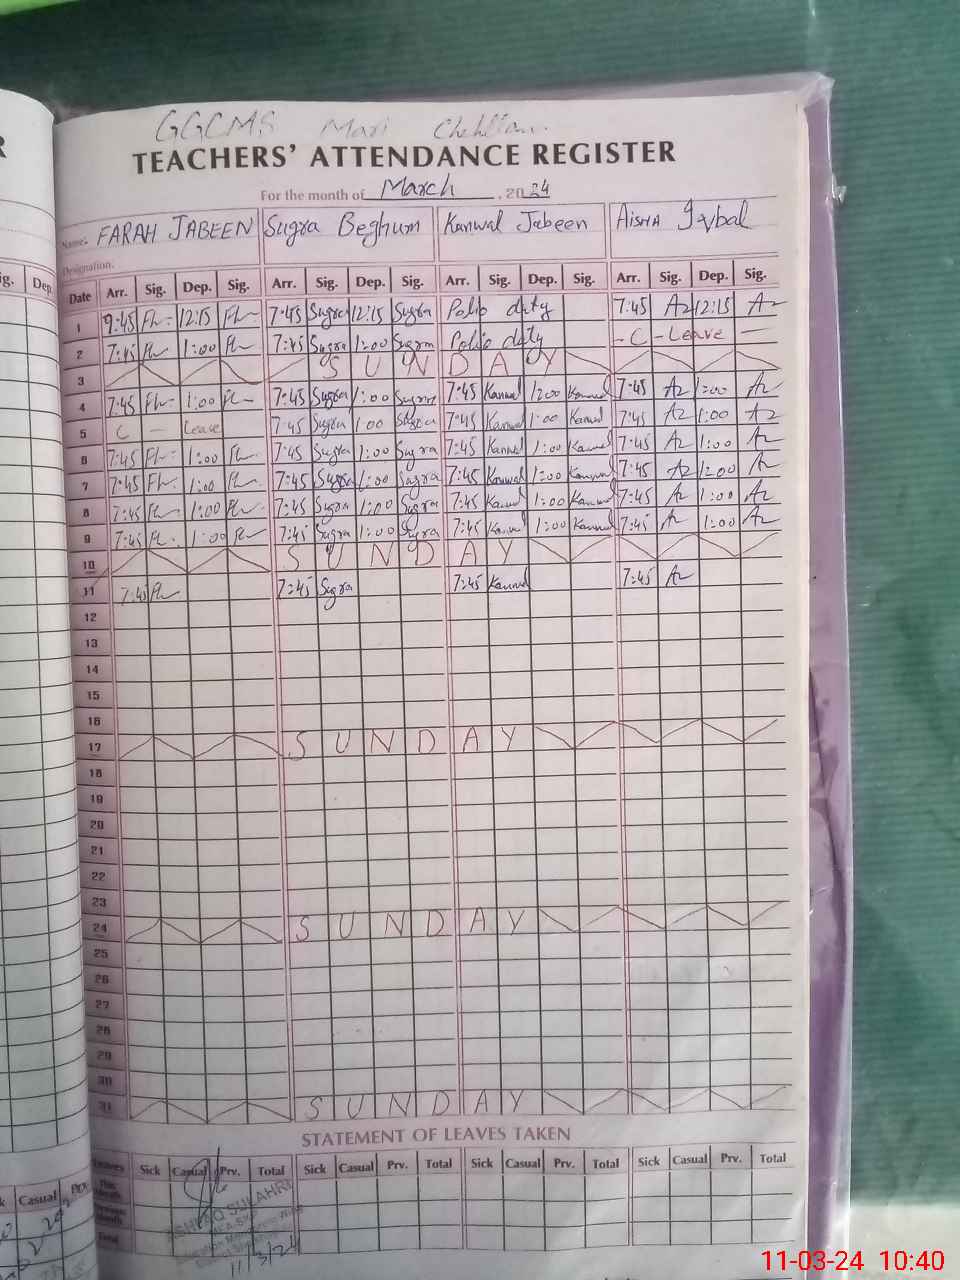 GGCMS Mari Chehllan.
TEACHERS' ATTENDANCE REGISTER
For the month of March, 2024
Name: FARAH JABEEN Sugra Beghum Kanwal Jabeen AISHA Iqbal
Designation:
Date Arr. Sig. Dep. Sig. Arr. Sig. Dep. Sig. Arr. Sig. Dep. Sig. Arr. Sig. Dep. Sig.
1 9:45 12:15 7:45 Sugra 12:15 Sugra Polio duty 7:45 Az 12:15 Az
2 7:45 1:00 7:45 Sugra 1:00 Sugra Polio duty - C - Leave -
3 SUNDAY
4 7:45 1:00 7:45 Sugra 1:00 Sugra 7:45 Kanwal 1:00 Kanwal 7:45 Az 1:00 Az
5 C - Leave 7:45 Sugra 1:00 Sugra 7:45 Kanwal 1:00 Kanwal 7:45 Az 1:00 Az
6 7:45 1:00 7:45 Sugra 1:00 Sugra 7:45 Kanwal 1:00 Kanwal 7:45 Az 1:00 Az
7 7:45 1:00 7:45 Sugra 1:00 Sugra 7:45 Kanwal 1:00 Kanwal 7:45 Az 1:00 Az
8 7:45 1:00 7:45 Sugra 1:00 Sugra 7:45 Kanwal 1:00 Kanwal 7:45 Az 1:00 Az
9 7:45 1:00 7:45 Sugra 1:00 Sugra 7:45 Kanwal 1:00 Kanwal 7:45 Az 1:00 Az
10 SUNDAY
11 7:45 7:45 Sugra 7:45 Kanwal 7:45 Az
12
13
14
15
16
17 SUNDAY
18
19
20
21
22
23
24 SUNDAY
25
26
27
28
29
30
31 SUNDAY
STATEMENT OF LEAVES TAKEN
Leaves Sick Casual Prv. Total Sick Casual Prv. Total Sick Casual Prv. Total Sick Casual Prv. Total
This Month
Previous Month
Total
11/3/24
11-03-24 10:40